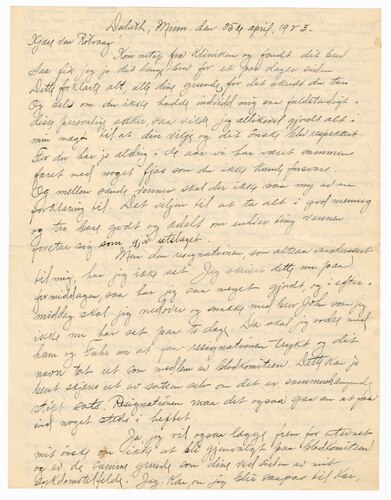 Duluth, Minn. den 25de april, 1923.
Kjære ven Rölvaag.
Kom netop fra kliniken og fandt dit brev.
Saa fik jeg jo dit brev for et par dager siden.
Dette forklarte alt, alle dine grunde for det skridt du tar.
Og selv om du ikke hadde indviet mig saa fuldstændig i
disse personlig saker, saa vilde jeg allikevel gjort alt i
min magt til at din vilje og dit ønske blev respektert.
For du har jo aldrig i de aar vi har været sammen
faret med noget fjas som du ikke kunde forsvare.
Og mellem venner skal der ikke saa mye av en
forklaring til. Det viljen til at ta alt i god mening
og tro bare godt og ædelt om enhver ting vennen
foretar sig som gjør utslaget.
Men den resignationen, som altsaa
til mig, har jeg ikke set. Jeg skriver dette nu paa
formiddagen, saa har jeg saa meget gjort, og i efter-
middag skal jeg nedover og snakke med bror John som jeg
ikke har set paa to dage. Da skal jeg ordne med
ham og Fuhr om at faa resignationen trykt og dit
navn tat ut som medlem av bladkomiteen. Dette kan jo
bent skjæres ut av satsen selv om det er sammenhængende
støpt sats. Resignationen maa det ogsaa gaa an at faa
ind noget steds i heftet.
Ja, jeg vil ogsaa lægge frem for styret
mit ønske om ikke at bli gjenvalgt paa bladkomiteen
og av de samme grunde som dine ved siden av mit
Jeg kan, om jeg blir saapas til kar,